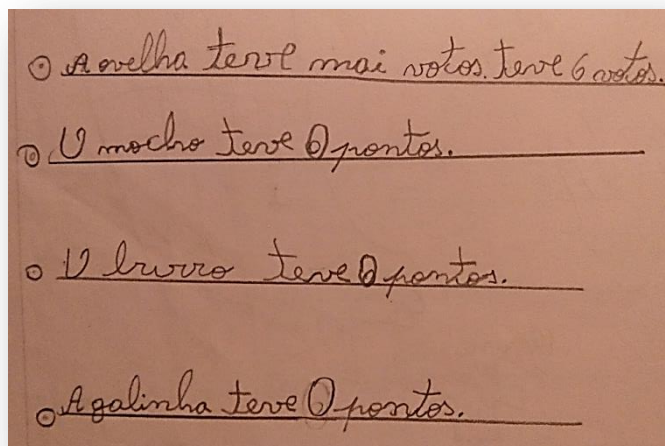 A ovelha teve mai votos. teve 6 votos.
O mocho teve 0 pontos.
O burro teve 0 pontos.
A galinha teve 0 pontos.